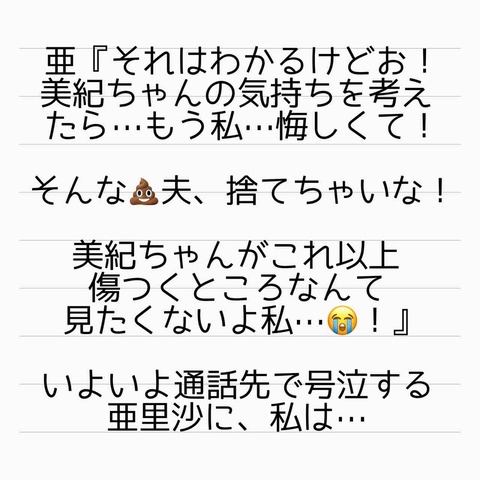 亜『それはわかるけどお！
美紀ちゃんの気持ちを考え
たら…もう私…悔しくて！
そんな💩夫、捨てちゃいな！
美紀ちゃんがこれ以上
傷つくところなんて
見たくないよ私…😭！』
いよいよ通話先で号泣する
亜里沙に、私は…